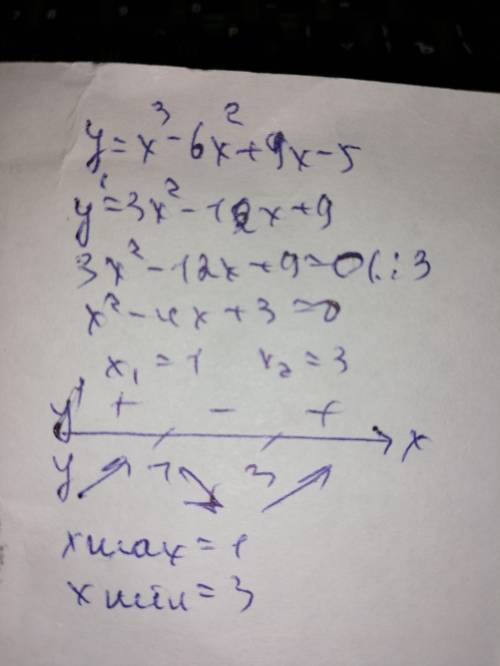 y=x³-6x²+9x-5
y'=3x²-12x+9
3x²-12x+9=0 |:3
x²-4x+3=0
x₁=1 x₂=3
y' + - + x
y 1 3
xmax=1
xmin=3